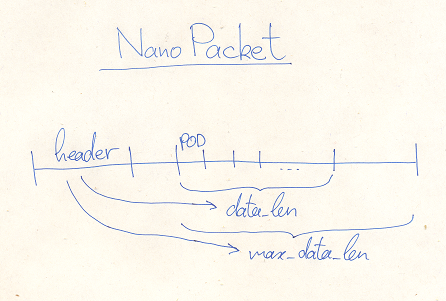 Nano Packet
POD
header
...
data_len
max_data_len